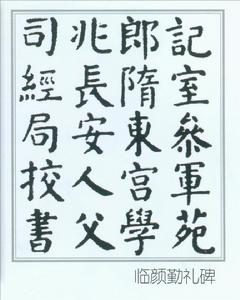 記室叅軍苑
郎隋東宮學
兆長安人父
司經局挍書
临颜勤礼碑